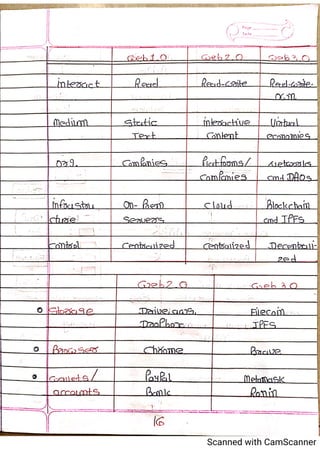 Web 1.0 Web 2.0 Web 3.0
interact Read Read-write Read-write-
own
medium Static interactive Virtual
Text Content economies
org. Companies Platforms/ Networks
Companies and DAOs
infrastru On-Prem Cloud Blockchain
cture Servers and IPFS
Control Centralized Centralized Decentrali-
zed
Web 2.0 Web 3.0
Storage Drive, aws, Filecoin
DropBox IPFS
Browser Chrome Brave
Wallets/ PayPal Metamask
accounts Bank Ronin
16
Scanned with CamScanner